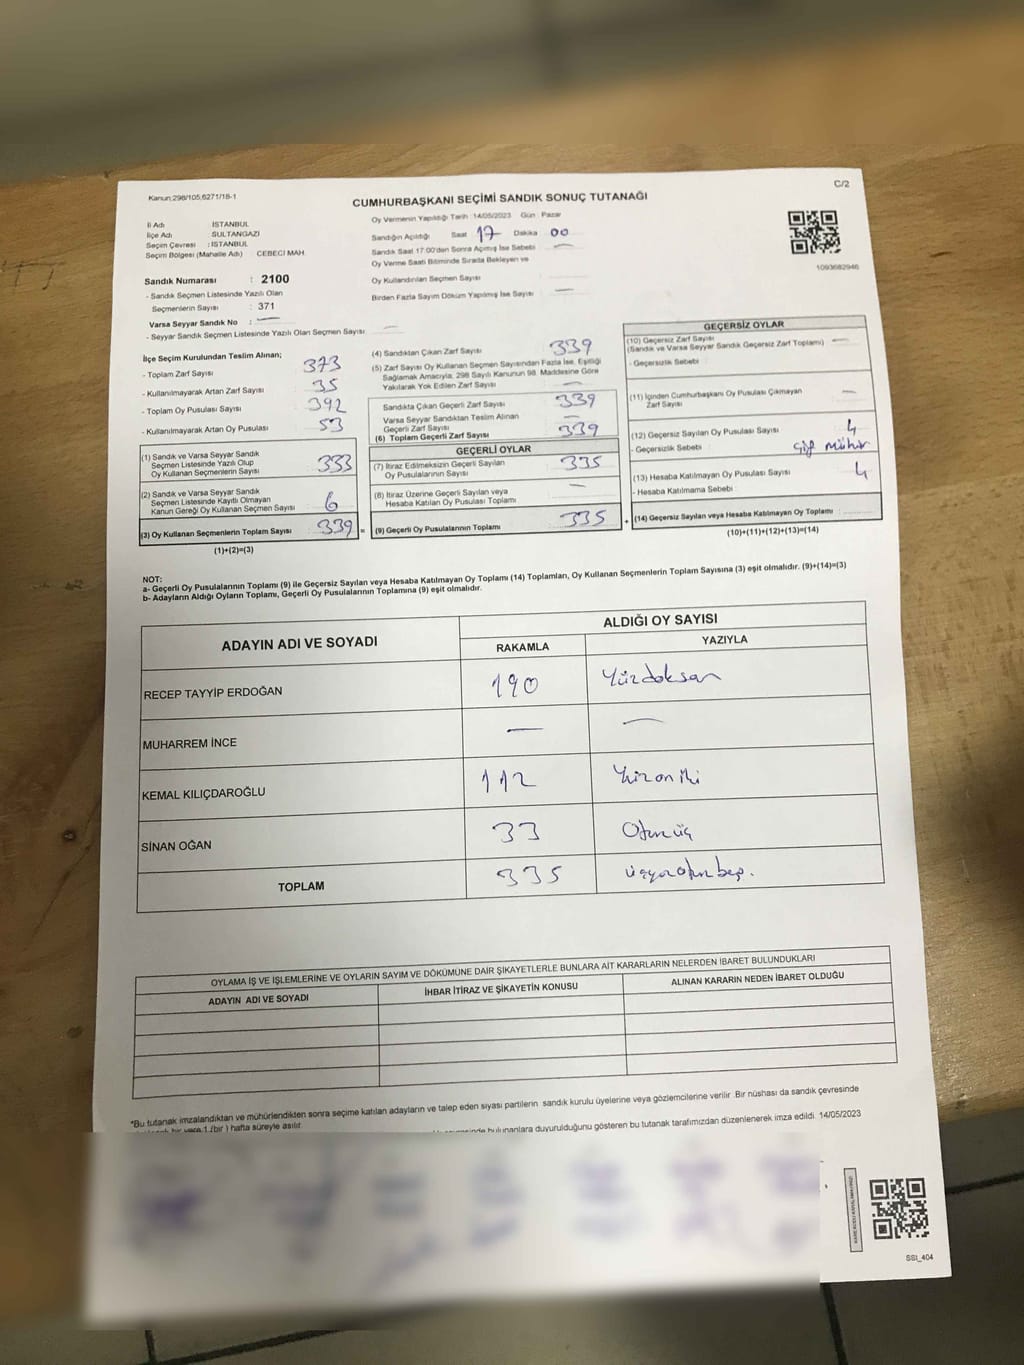 Kanun:298/105,6271/18-1
C/2
CUMHURBAŞKANI SEÇİMİ SANDIK SONUÇ TUTANAĞI
İl Adı İSTANBUL
İlçe Adı SULTANGAZİ
Seçim Çevresi : İSTANBUL
Seçim Bölgesi (Mahalle Adı) CEBECİ MAH.
Sandık Numarası : 2100
- Sandık Seçmen Listesinde Yazılı Olan
Seçmenlerin Sayısı : 371
Varsa Seyyar Sandık No : —
- Seyyar Sandık Seçmen Listesinde Yazılı Olan Seçmen Sayısı —
Oy Vermenin Yapıldığı Tarih :14/05/2023 Gün Pazar
Sandığın Açıldığı Saat 17 Dakika 00
Sandık Saat 17:00'den Sonra Açılmış İse Sebebi —
Oy Verme Saati Bitiminde Sırada Bekleyen ve
Oy Kullandırılan Seçmen Sayısı —
Birden Fazla Sayım Döküm Yapılmış İse Sayısı —
1093682946
İlçe Seçim Kurulundan Teslim Alınan;
- Toplam Zarf Sayısı 373
- Kullanılmayarak Artan Zarf Sayısı 35
- Toplam Oy Pusulası Sayısı 392
- Kullanılmayarak Artan Oy Pusulası 53
(1) Sandık ve Varsa Seyyar Sandık
Seçmen Listesinde Yazılı Olup
Oy Kullanan Seçmenlerin Sayısı 333
(2) Sandık ve Varsa Seyyar Sandık
Seçmen Listesinde Kayıtlı Olmayan
Kanun Gereği Oy Kullanan Seçmen Sayısı 6
(3) Oy Kullanan Seçmenlerin Toplam Sayısı 339 =
(1)+(2)=(3)
(4) Sandıktan Çıkan Zarf Sayısı 339
(5) Zarf Sayısı Oy Kullanan Seçmen Sayısından Fazla İse, Eşitliği
Sağlamak Amacıyla; 298 Sayılı Kanunun 98. Maddesine Göre
Yakılarak Yok Edilen Zarf Sayısı —
Sandıkta Çıkan Geçerli Zarf Sayısı 339
Varsa Seyyar Sandıktan Teslim Alınan
Geçerli Zarf Sayısı —
(6) Toplam Geçerli Zarf Sayısı 339
GEÇERLİ OYLAR
(7) İtiraz Edilmeksizin Geçerli Sayılan
Oy Pusulalarının Sayısı 335
(8) İtiraz Üzerine Geçerli Sayılan veya
Hesaba Katılan Oy Pusulası Toplamı —
(9) Geçerli Oy Pusulalarının Toplamı 335 +
GEÇERSİZ OYLAR
(10) Geçersiz Zarf Sayısı —
(Sandık ve Varsa Seyyar Sandık Geçersiz Zarf Toplamı)
- Geçersizlik Sebebi
(11) İçinden Cumhurbaşkanı Oy Pusulası Çıkmayan
Zarf Sayısı —
(12) Geçersiz Sayılan Oy Pusulası Sayısı 4
- Geçersizlik Sebebi Çift Mühür
(13) Hesaba Katılmayan Oy Pusulası Sayısı 4
- Hesaba Katılmama Sebebi
(14) Geçersiz Sayılan veya Hesaba Katılmayan Oy Toplamı
(10)+(11)+(12)+(13)=(14)
NOT:
a- Geçerli Oy Pusulalarının Toplamı (9) ile Geçersiz Sayılan veya Hesaba Katılmayan Oy Toplamı (14) Toplamları, Oy Kullanan Seçmenlerin Toplam Sayısına (3) eşit olmalıdır. (9)+(14)=(3)
b- Adayların Aldığı Oyların Toplamı, Geçerli Oy Pusulalarının Toplamına (9) eşit olmalıdır.
ADAYIN ADI VE SOYADI
ALDIĞI OY SAYISI
RAKAMLA YAZIYLA
RECEP TAYYİP ERDOĞAN 190 Yüzdoksan
MUHARREM İNCE — —
KEMAL KILIÇDAROĞLU 112 Yüzoniki
SİNAN OĞAN 33 Otuzüç
TOPLAM 335 üçyüzotuzbeş.
OYLAMA İŞ VE İŞLEMLERİNE VE OYLARIN SAYIM VE DÖKÜMÜNE DAİR ŞİKAYETLERLE BUNLARA AİT KARARLARIN NELERDEN İBARET BULUNDUKLARI
ADAYIN ADI VE SOYADI İHBAR İTİRAZ VE ŞİKAYETİN KONUSU ALINAN KARARIN NEDEN İBARET OLDUĞU
*Bu tutanak imzalandıktan ve mühürlendikten sonra seçime katılan adayların ve talep eden siyasi partilerin sandık kurulu üyelerine veya gözlemcilerine verilir. Bir nüshası da sandık çevresinde
bir yere 1 (bir ) hafta süreyle asılır.
bulunanlara duyurulduğunu gösteren bu tutanak tarafımızdan düzenlenerek imza edildi. 14/05/2023
SSI_404